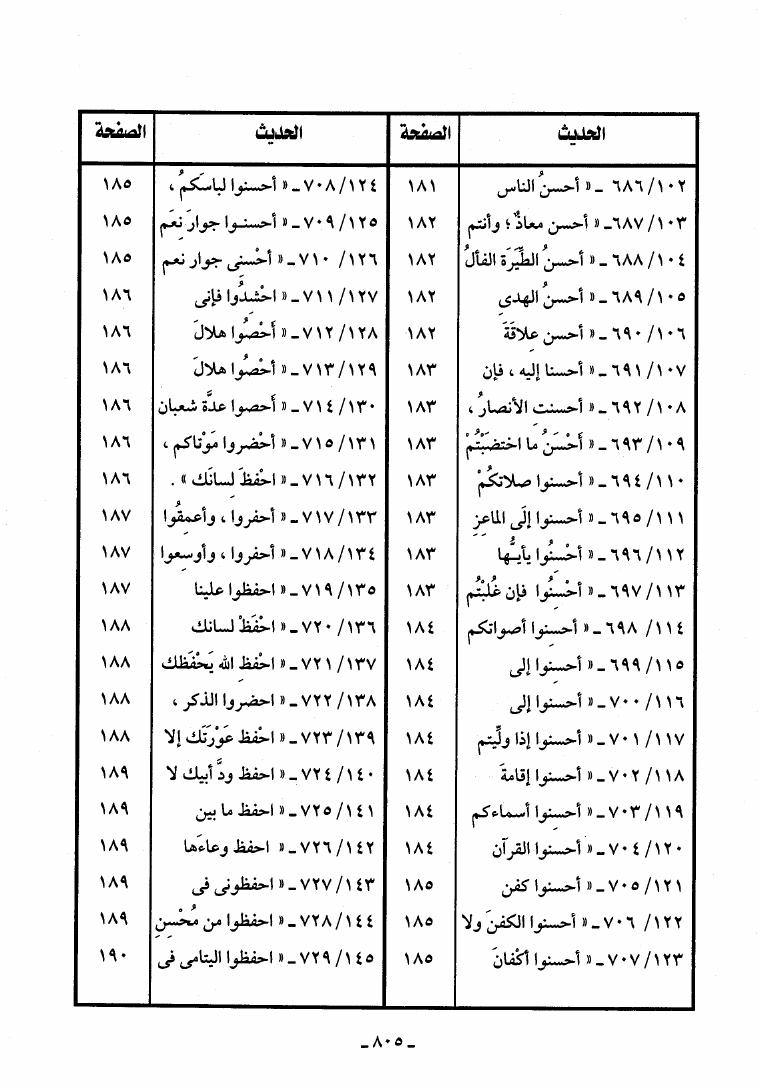 الحديث الصفحة
١٠٢/ ٦٨٦ ـ « أحسنُ الناس ١٨١
١٠٣/ ٦٨٧ـ « أحسن معاذٌ؛ وأنتم ١٨٢
١٠٤/ ٦٨٨ ـ « أحسنُ الطِّيَرَة الفألُ ١٨٢
١٠٥/ ٦٨٩ ـ « أحسنُ الهدىِ ١٨٢
١٠٦/ ٦٩٠ ـ « أحسن علاقةَ ١٨٢
١٠٧/ ٦٩١ ـ « أحسنا إليه ، فإن ١٨٣
١٠٨/ ٦٩٢ ـ « أحسنت الأنصارُ ، ١٨٣
١٠٩/ ٦٩٣ ـ « أَحْسَنُ ما اختضَبْتُمْ ١٨٣
١١٠/ ٦٩٤ ـ « أحسنوا صلاتكُمْ ١٨٣
١١١/ ٦٩٥ ـ « أحسنوا إلَى الماعِزِ ١٨٣
١١٢/ ٦٩٦ ـ « أحْسِنُوا يأيـُّها ١٨٣
١١٣/ ٦٩٧ ـ « أحْسِنُوا فإن غُلبْتُم ١٨٣
١١٤/ ٦٩٨ ـ « أحسنوا أصواتكم ١٨٤
١١٥/ ٦٩٩ ـ « أحسنوا إلى ١٨٤
١١٦/ ٧٠٠ ـ « أحسنوا إلى ١٨٤
١١٧/ ٧٠١ ـ « أحسنوا إذا ولِّيتم ١٨٤
١١٨/ ٧٠٢ ـ « أحسنوا إقامةَ ١٨٤
١١٩/ ٧٠٣ ـ « أحسنوا أسماءكم ١٨٤
١٢٠/ ٧٠٤ ـ « أحسنوا القرآن ١٨٤
١٢١/ ٧٠٥ ـ « أحسنوا كفن ١٨٥
١٢٢/ ٧٠٦ ـ « أحسنوا الكفنَ ولا ١٨٥
١٢٣/ ٧٠٧ ـ « أحسنوا أكْفانَ ١٨٥
الحديث الصفحة
١٢٤/ ٧٠٨ ـ « أحسنوا لباسَكمُ ، ١٨٥
١٢٥/ ٧٠٩ ـ « أحسنـوا جوارَ نِعَم ١٨٥
١٢٦/ ٧١٠ ـ « أحْسِنى جوار نعم ١٨٥
١٢٧/ ٧١١ ـ « احْشدُوا فإنى ١٨٦
١٢٨/ ٧١٢ ـ « أَحْصُوا هلالَ ١٨٦
١٢٩/ ٧١٣ ـ « أحْصُوا هلالَ ١٨٦
١٣٠/ ٧١٤ ـ « أَحصوا عدَّة شعبان ١٨٦
١٣١/ ٧١٥ ـ « أحْضروا مَوْتاكم ، ١٨٦
١٣٢/ ٧١٦ ـ « احْفظَ لسانَك » . ١٨٦
١٣٣/ ٧١٧ ـ « أحفروا ، وأعمِقُوا ١٨٧
١٣٤/ ٧١٨ ـ « أحفروا ، وأوسِعوا ١٨٧
١٣٥/ ٧١٩ ـ « احفظوا علينا ١٨٧
١٣٦/ ٧٢٠ ـ « احْفَظْ لسانك ١٨٨
١٣٧/ ٧٢١ ـ « احْفظِ الله يَحْفَظك ١٨٨
١٣٨/ ٧٢٢ ـ « احضروا الذكر ، ١٨٨
١٣٩/ ٧٢٣ ـ « احْفظ عَوْرَتَك إلا ١٨٨
١٤٠/ ٧٢٤ ـ « احفظ ودَّ أبيك لا ١٨٩
١٤١/ ٧٢٥ ـ « احفظ ما بين ١٨٩
١٤٢/ ٧٢٦ ـ « احفظ وعاءَها ١٨٩
١٤٣/ ٧٢٧ ـ « احفظونى فى ١٨٩
١٤٤/ ٧٢٨ ـ « احفظوا من مُحْسِنِ ١٨٩
١٤٥/ ٧٢٩ ـ « احفظوا اليتامى فى ١٩٠
ـ ٨٠٥ ـ